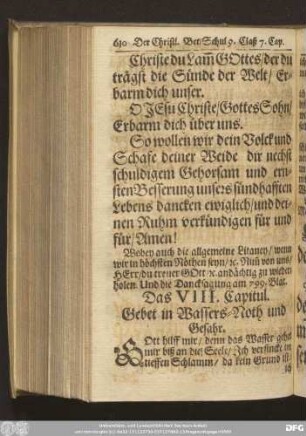 610 Der Christl. Bet/Schul 9. Claß 7. Cap.
Christe du Lam̃ GOttes/der du
trägst die Sünde der Welt/ Er-
barm dich unser.
O JEsu Christe/Gottes Sohn/
Erbarm dich über uns.
So wollen wir dein Volck und
Schafe deiner Weide dir nechst
schuldigem Gehorsam und ern-
sten Besserung unsers sündhafften
Lebens dancken ewiglich/und dei-
nen Ruhm verkündigen für und
für/Amen!
Wobey auch die allgemeine Litaney/ wenn
wir in höchsten Nöthen seyn/ꝛc. Nim von uns/
HErr/du treuer GOtt ꝛc andächtig zu wieder-
holen. Und die Dancksagung am 799. Blat.
Das VIII. Capitul.
Gebet in Wassers-Noth und
Gefahr.
GOtt hilff mir/ denn das Wasser gehet
mir biß an die Seele/ Ich versincke in
tieffen Schlamm/ da kein Grund ist/
DFG